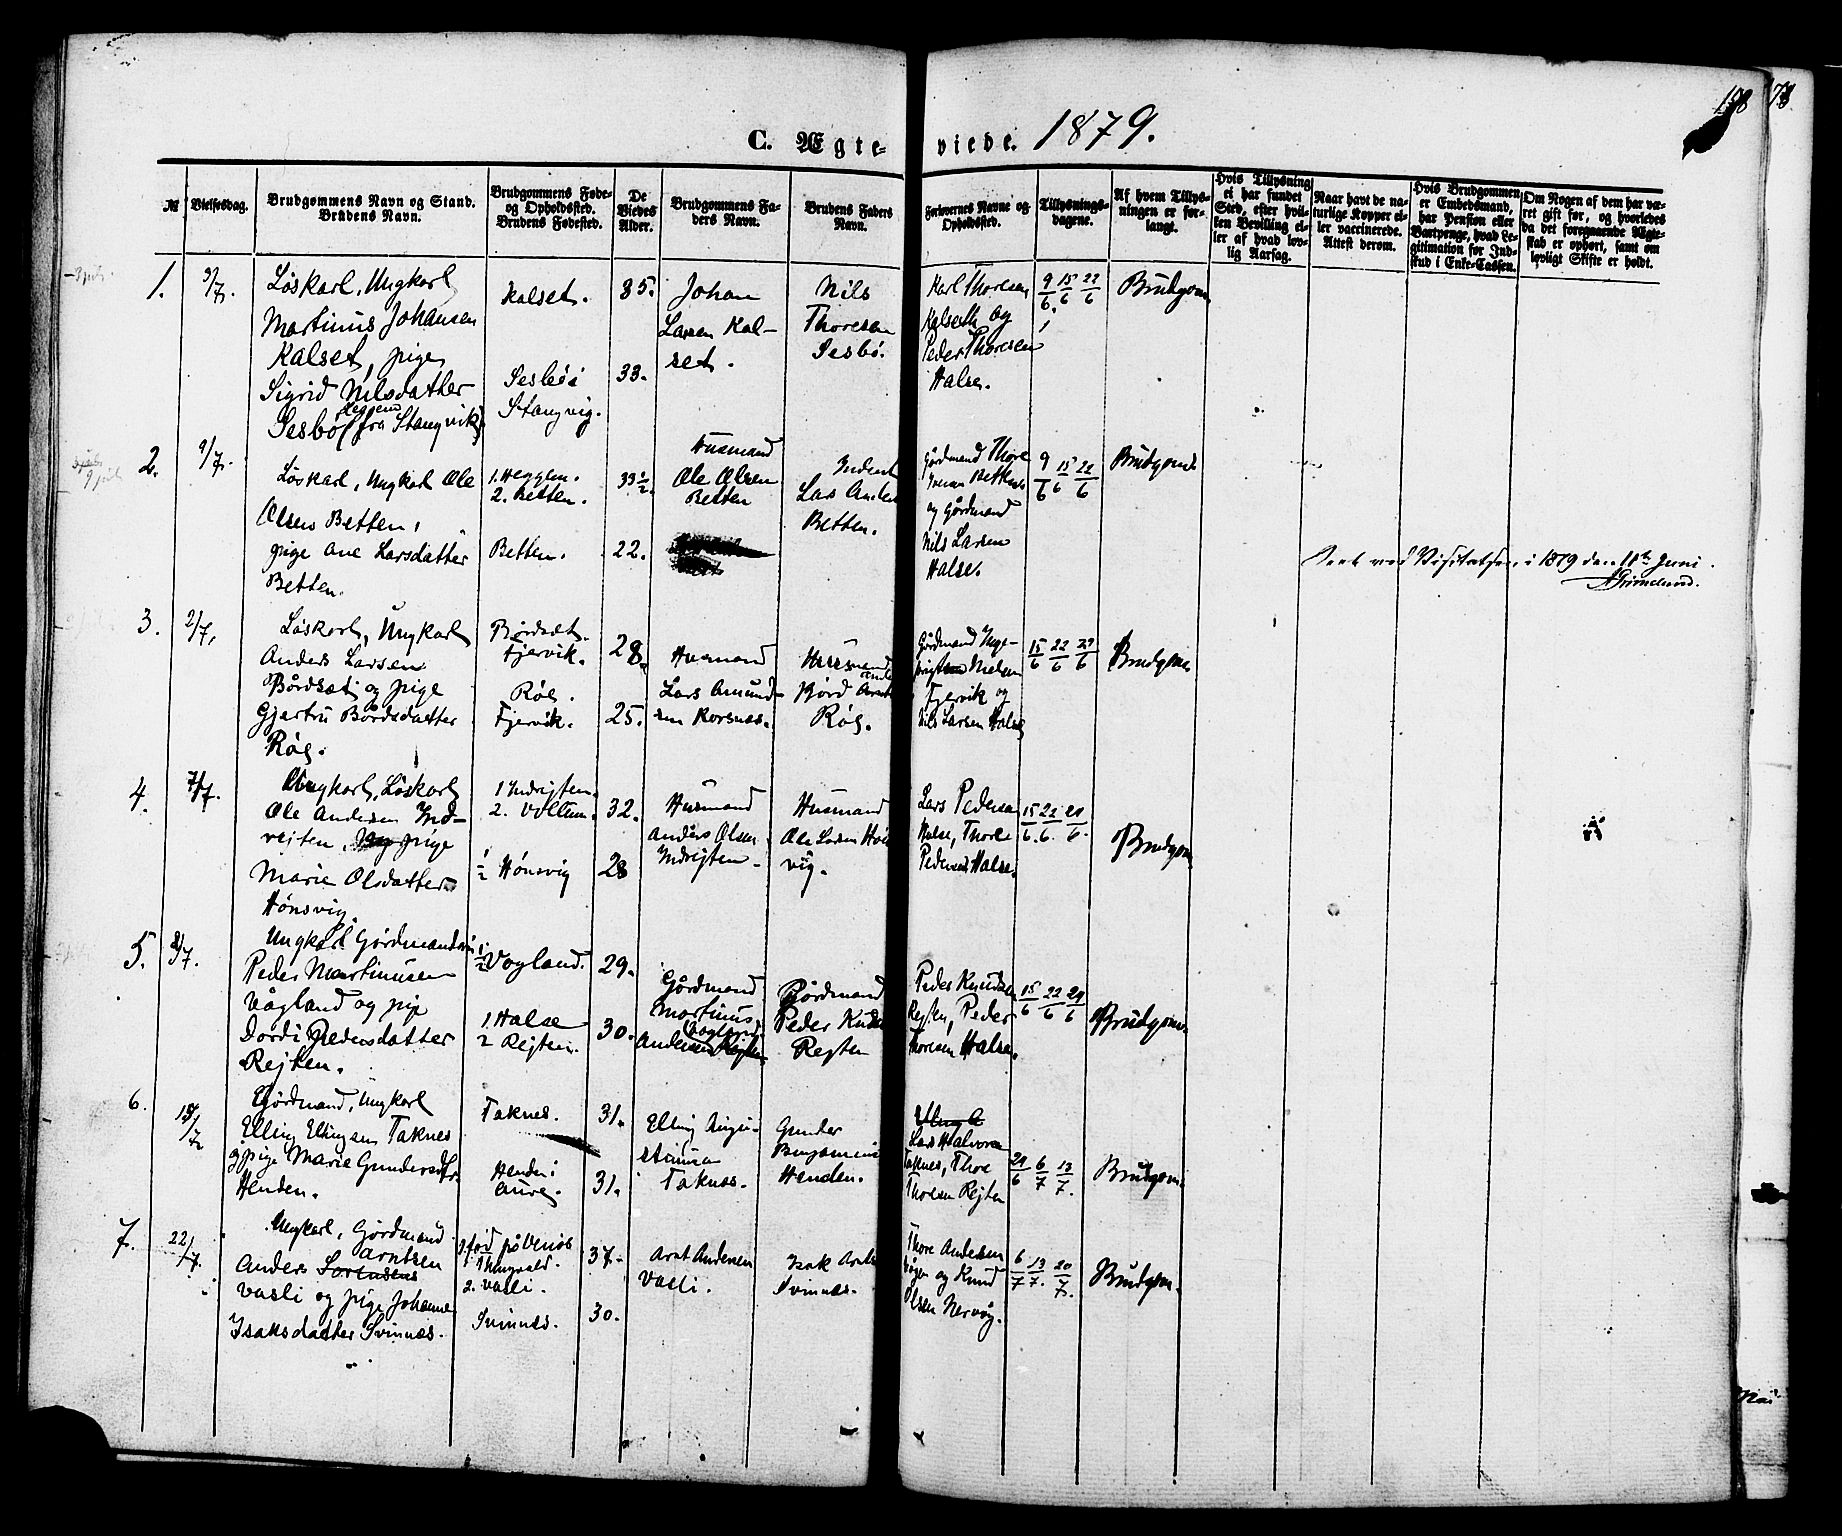 198
C. Ægteviede. 1879.
№
Vielsesdag.
Brudgommens Navn og Stand.
Brudens Navn.
Brudgommens Føde-
og Opholdssted.
Brudens Fødested.
De
Viedes
Alder.
Brudgommens Fa-
ders Navn.
Brudens Faders
Navn.
Forlovernes Navne og
Opholdssted.
Tillysnings-
dagene.
Af hvem Tillys-
ningen er for-
langt.
Hvis Tillysning
ei har fundet
Sted, efter hvil-
len Bevilling el-
ler af hvad lov-
lig Aarsag.
Naar havt de na-
turlige Kopper el-
ler vaccinerede.
Attest derom.
Hvis Brudgommen
er Embedsmand,
har Pension eller
Vartpenge, hvad Le-
gitimation for Ind-
skud i Enke-Cassen.
Om Nogen af dem har væ-
ret gift før, og hvorledes
da det foregaaende Ægte-
skab er ophørt, samt om
lovligt Skifte er holdt.
1. 9/7.
Løskarl, Ungkarl
Martinus Johansen
Kalset, pige
Sigrid Nilsdatter
Sesbö (fra Stangvik)
Kalset.
Sesbö i
Stangvig.
35.
33.
Johan
Larsen Kal-
set.
Nils
Thoresen
Sesbö.
Karl Thoresen
Kalseth og
Peder Thoresen
Halse.
9/6 15/6 22/6
Brudgom
2. 9/7.
Løskarl, Ungkarl Ole
Olsen Betten,
pige Ane Larsdatter
Betten.
1. Hegglem.
2. Betten.
Betten.
33 1/2.
22.
Husmand
Ole Olsen
Betten
Lars Anders
Betten.
Gårdmand Thore
Iversen Betten
og Gårdmand
Nils Larsen
Halse.
9/6 15/6 22/6
Brudgom
Seet ved Visitatsen i 1879 den 11te Juni.
AGrimelund.
3. 2/7.
Løskarl, Ungkarl
Anders Larsen
Bårdset og pige
Gjertru Bårdsdatter
Røe.
Bårdset.
Fjervik.
Røe.
Fjervik.
28.
25.
Husmand
Lars Amund-
sen Korsnæs.
Husmand
Bård
Røe.
Gårdmand Inge-
brigtsen Nielsen
Fjervik og
Nils Larsen Halse
15/6 22/6 29/6
Brudgom
4. 7/7.
Ungkarl, Løskarl
Ole Andersen Ind-
rejten, pige
Marie Olsdatter
Hønsvig.
1 Indrejten.
2. Vollum.
1/2 Hønsvig
32.
28
Husmand
Anders Olsen
Indrejten
Husmand
Ole Larsen Høns
vig.
Lars Pedersen
Halse, Thore
Pedersen Halse.
15/6. 22/6. 29/6.
Brudgom
5. 9/7.
Ungkarl Gårdmandssøn
Peder Martinusen
Vågland og pige
Dordi Pedersdatter
Rejten.
1/2 Vågland.
1. Halse
2 Rejten.
29.
30.
Gårdmand
Martinus
Andersen Vågland
Gårdmand
Peder Knuds
Rejten
Peder Knudsen
Rejten, Peder
Thoresen Halse.
15/6 22/6 29/6
Brudgom
6. 15/7
Gårdmand, Ungkarl
Elling Ellingsen Taknes
og pige Marie Gundersdtr.
Henden.
Taknes.
Henden i
Aure.
31.
31.
Elling
Taknes.
Gunder
Benjamins
Henden.
Lars Halvorsen
Taknes, Thore
Thoresen Rejten
29/6 6/7 13/7.
Brudgom.
7. 22/7.
Ungkarl, Gårdmand
Anders Arntsen
Vasli og pige Johanne
Isaksdatter Svinnæs.
1. Født på
2. Vasli.
Svinnæs.
37.
30.
Arnt Andersen
Vasli.
Isak Arnts
Svinnæs.
Thore Andersen
Vågen og Knud
Olsen Nervåg.
6/7 13/7. 20/7.
Brudgom.